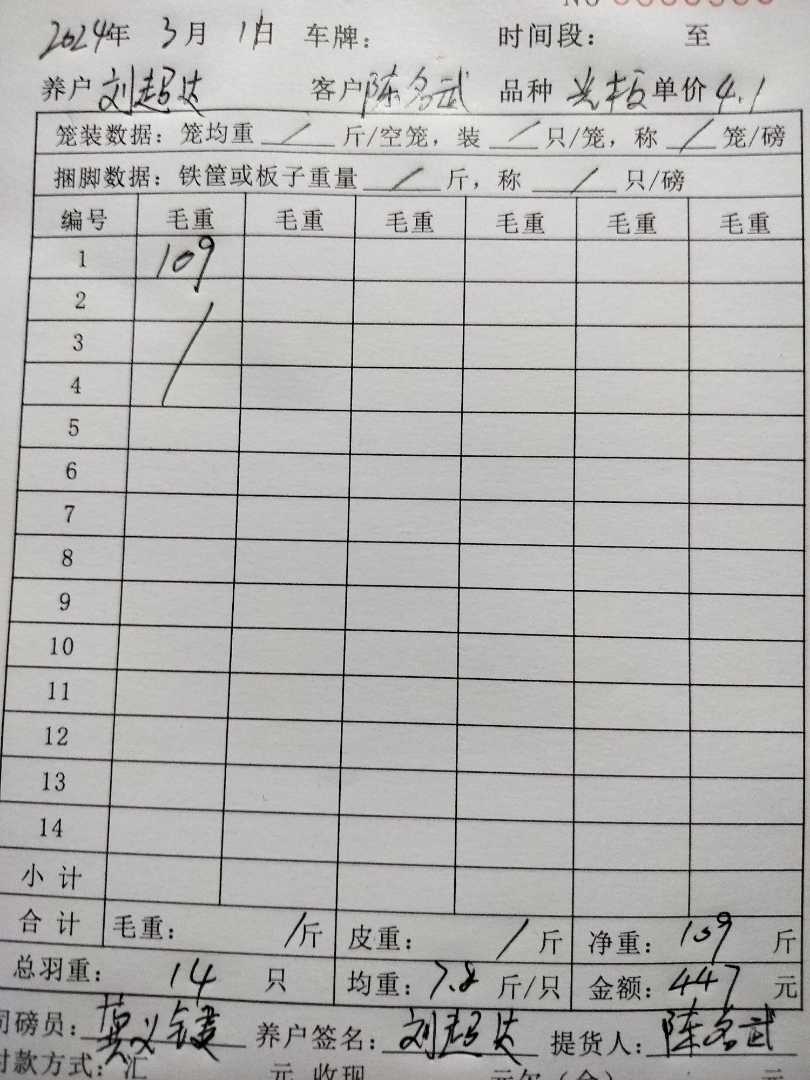 No
2024年 3月 11日 车牌： 时间段： 至
养户 刘超达 客户 陈名武 品种 光板 单价 4.1
笼装数据：笼均重 / 斤/空笼，装 / 只/笼，称 / 笼/磅
捆脚数据：铁筐或板子重量 / 斤，称 / 只/磅
编号 毛重 毛重 毛重 毛重 毛重 毛重
1 109
2
3
4
5
6
7
8
9
10
11
12
13
14
小计
合计 毛重： / 斤 皮重： / 斤 净重： 109 斤
总羽重： 14 只 均重： 7.8 斤/只 金额： 447 元
司磅员： 养户签名： 刘超达 提货人： 陈名武
付款方式：汇 元 收现 元欠（余） 元